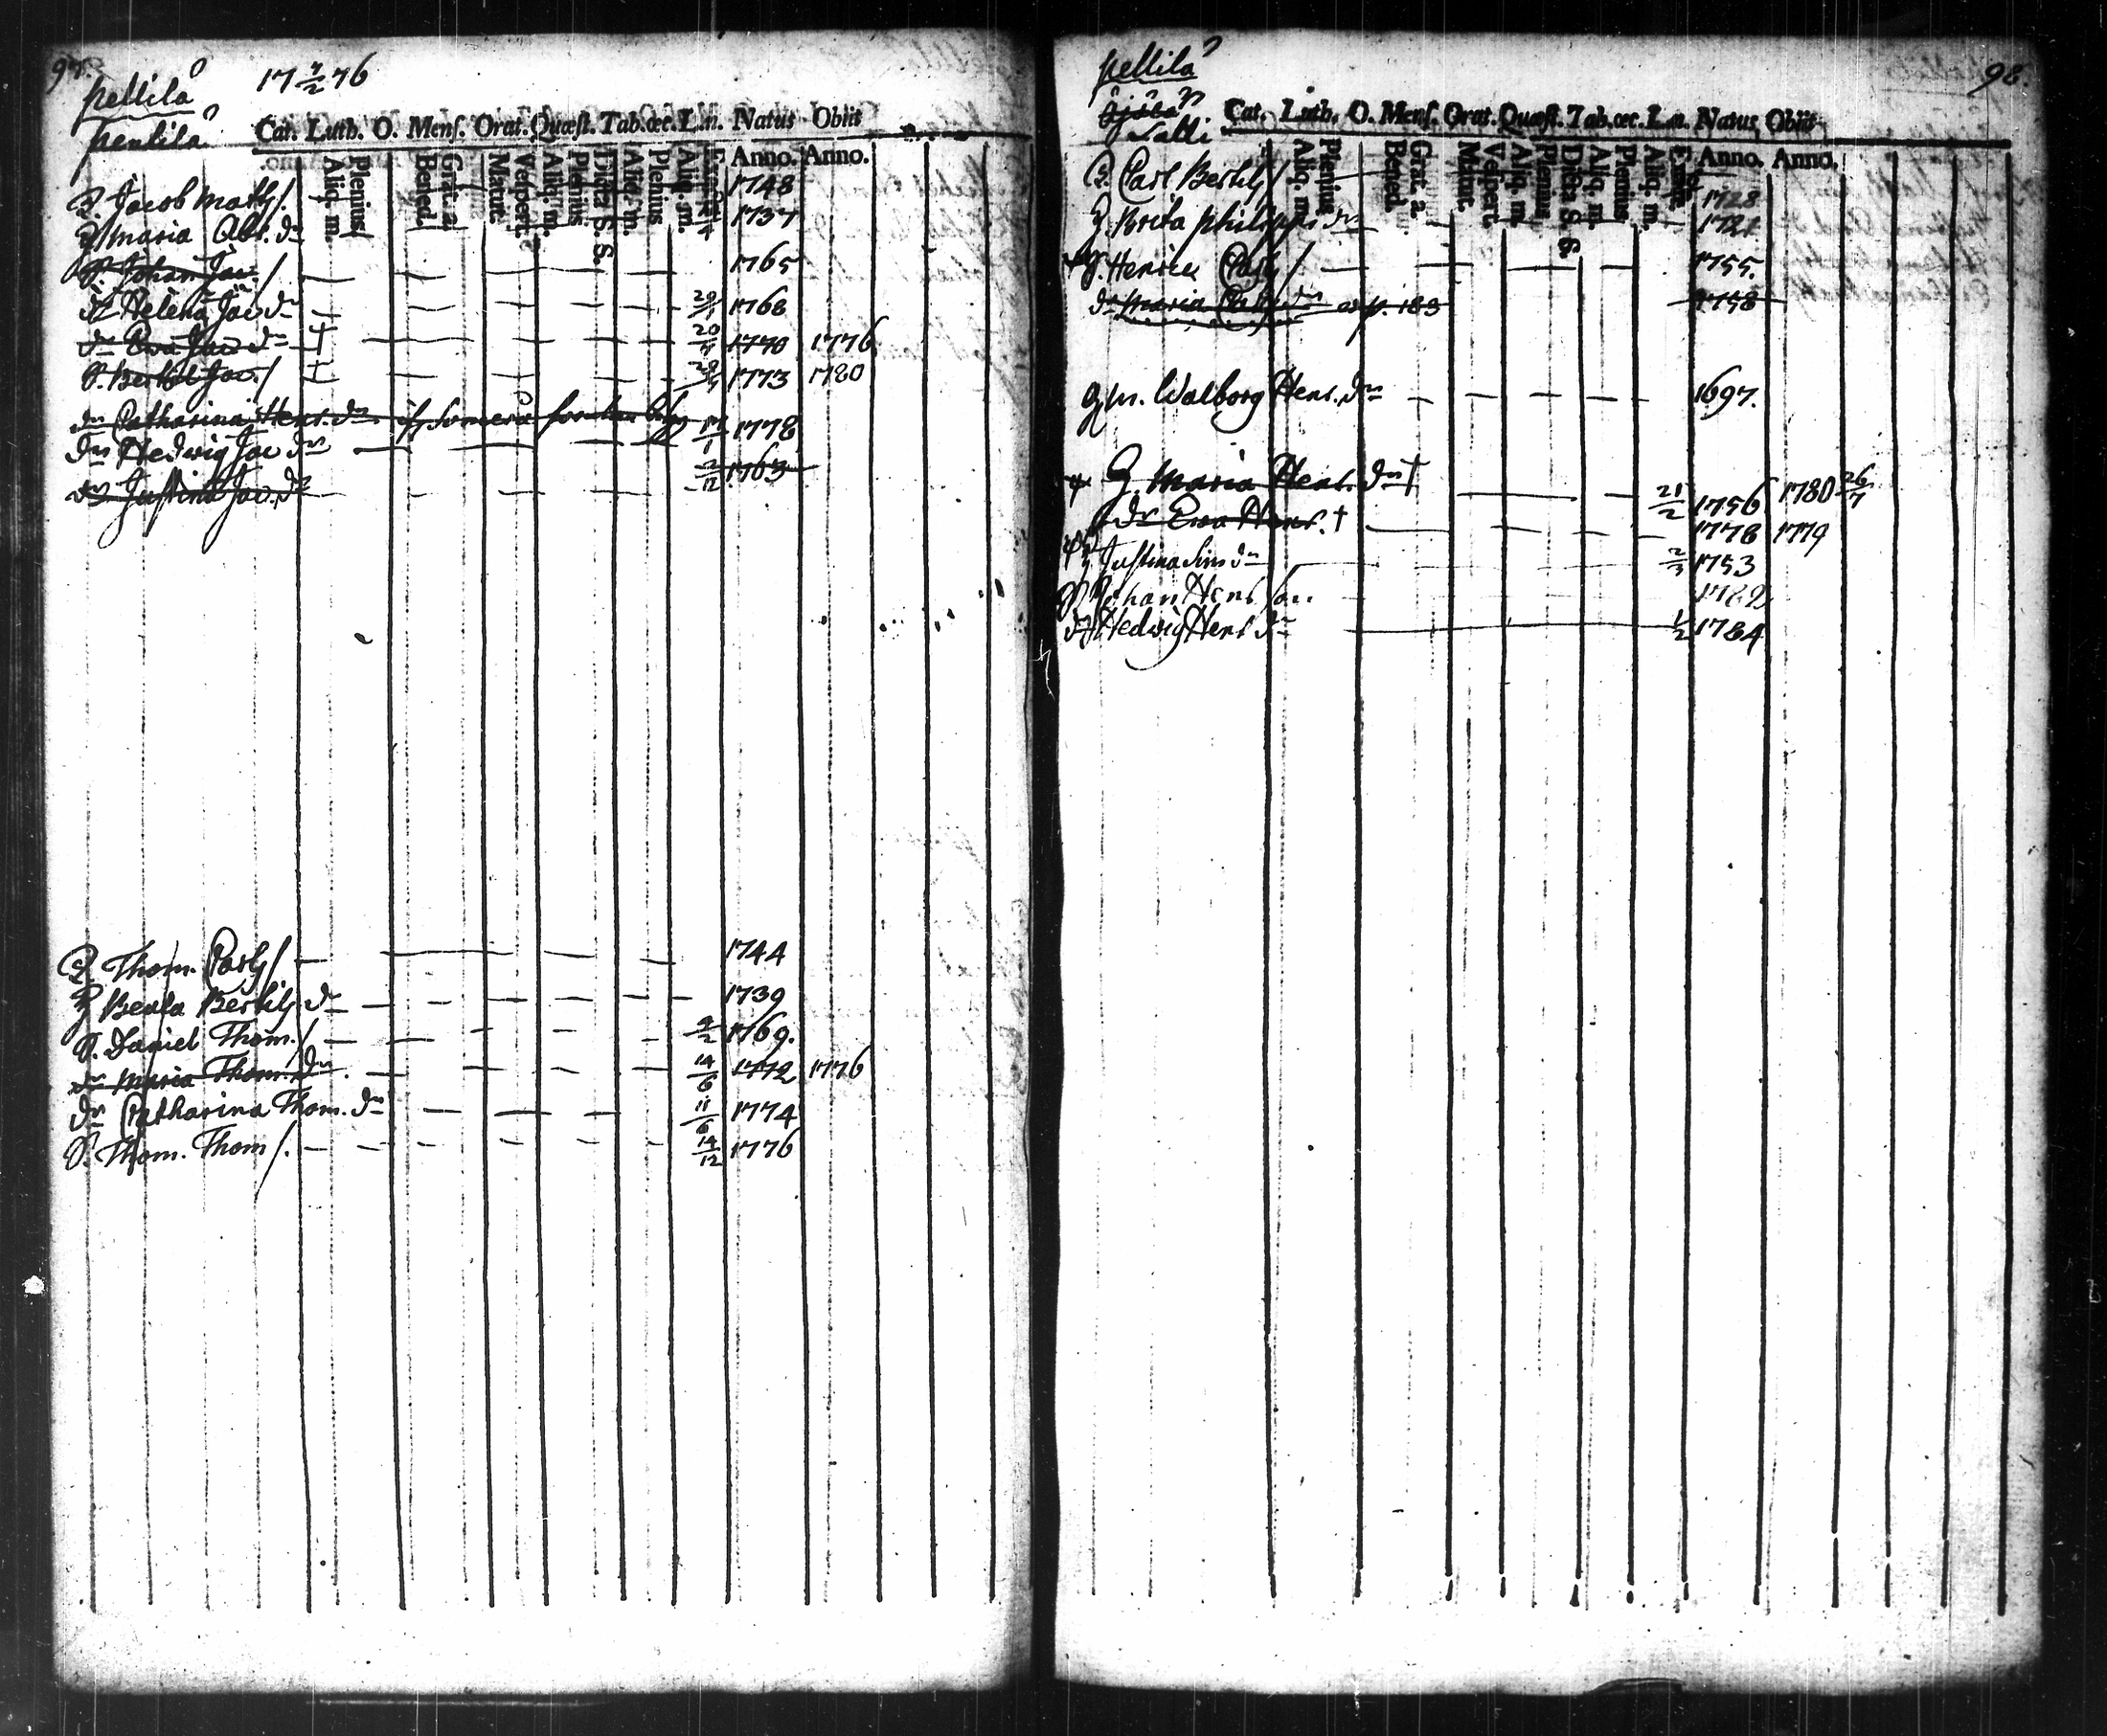 97.
pellilä 17 7/2 76
penkilä
Cat. Luth. O. Mens. Orat. Quæst. Tab. œc. L. n. Natus Obiit
Aliq. m. Plenius Bened. Grat. a. Matut. Vespert. Aliq. m. Plenius. Dicta S. S. Aliq. m. Plenius Aliq. m. Anno. Anno.
Jacob Math/. 1748
H. Maria Abr. dr 1737
S. Johan Jac./ 1765
dr Helena Jac dr 1768
dr Eva Jac dr † 20 1770 1776
S. Bertil Jac./ † 1773 1780
dr Catharina Henr. dr
dr Hedwig Jac dr 17/1 1778
dr Justina Jac. dr 2/12 1763
Thom. Carls/ 1744
H Beata Bertils dr 1739
S. Daniel Thom./ 9/2 1769.
dr Maria Thom. dr. 14/6 1772 1776
dr Catharina Thom. dr 11/6 1774
S. Thom. Thom/. 14/12 1776
pellilä 98
Lalli
Cat. Luth. O. Mens. Orat. Quæst. Tab. œc. L. n. Natus Obiit
Aliq. m. Plenius Bened. Grat. a. Matut. Vespert. Aliq. m. Plenius Dicta S. S. Aliq. m. Plenius Aliq. m. Anno. Anno.
Carl Bertils/ 1728
H. Brita Philippi dr 1721
S. Henric Carls/ 1755.
dr Maria Carls dr p. 183 1758
Gm. Walborg Henr. dr 1697.
H. Maria Henr. dr † 21/2 1756 1780 26/7
dr Eva Henr. † 1778 1779
H Justina Sim dr 2/3 1753
S Johan Henr son
dr Hedwig Henr dr 1/2 1784